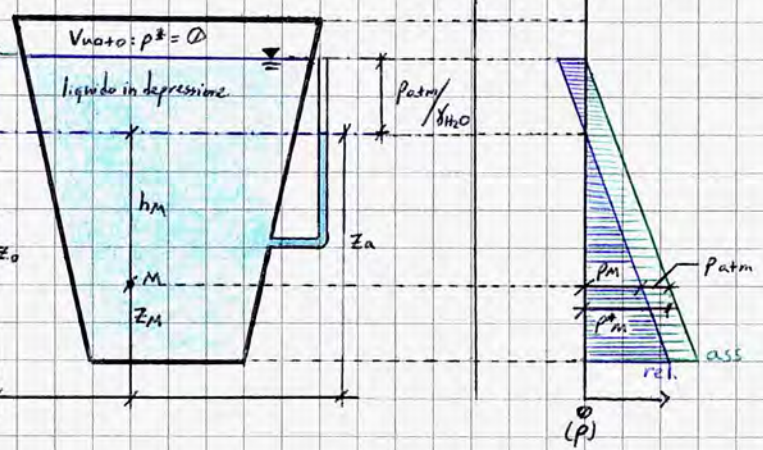 Vuoto: p* = 0
liquido in depressione
patm/γH2O
hM
zo
za
M
zM
pM
patm
p*M
ass
rel.
0
(p)